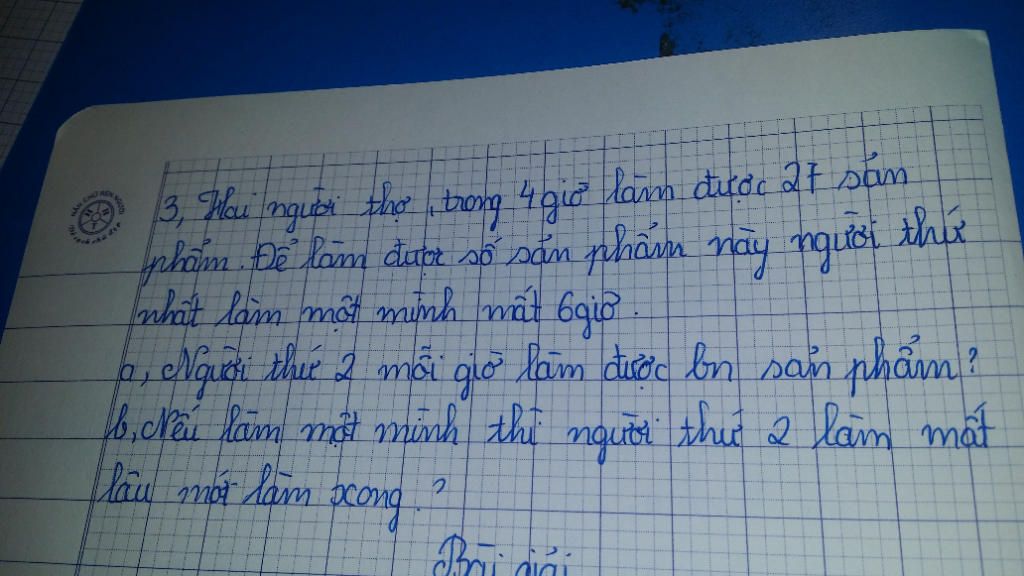 3, Hai người thợ, trong 4 giờ làm được 27 sản
phẩm. Để làm được số sản phẩm này người thứ
nhất làm một mình mất 6 giờ.
a, Người thứ 2 mỗi giờ làm được bn sản phẩm?
b, Nếu làm một mình thì người thứ 2 làm mất
lâu mới làm xong?
Bài giải